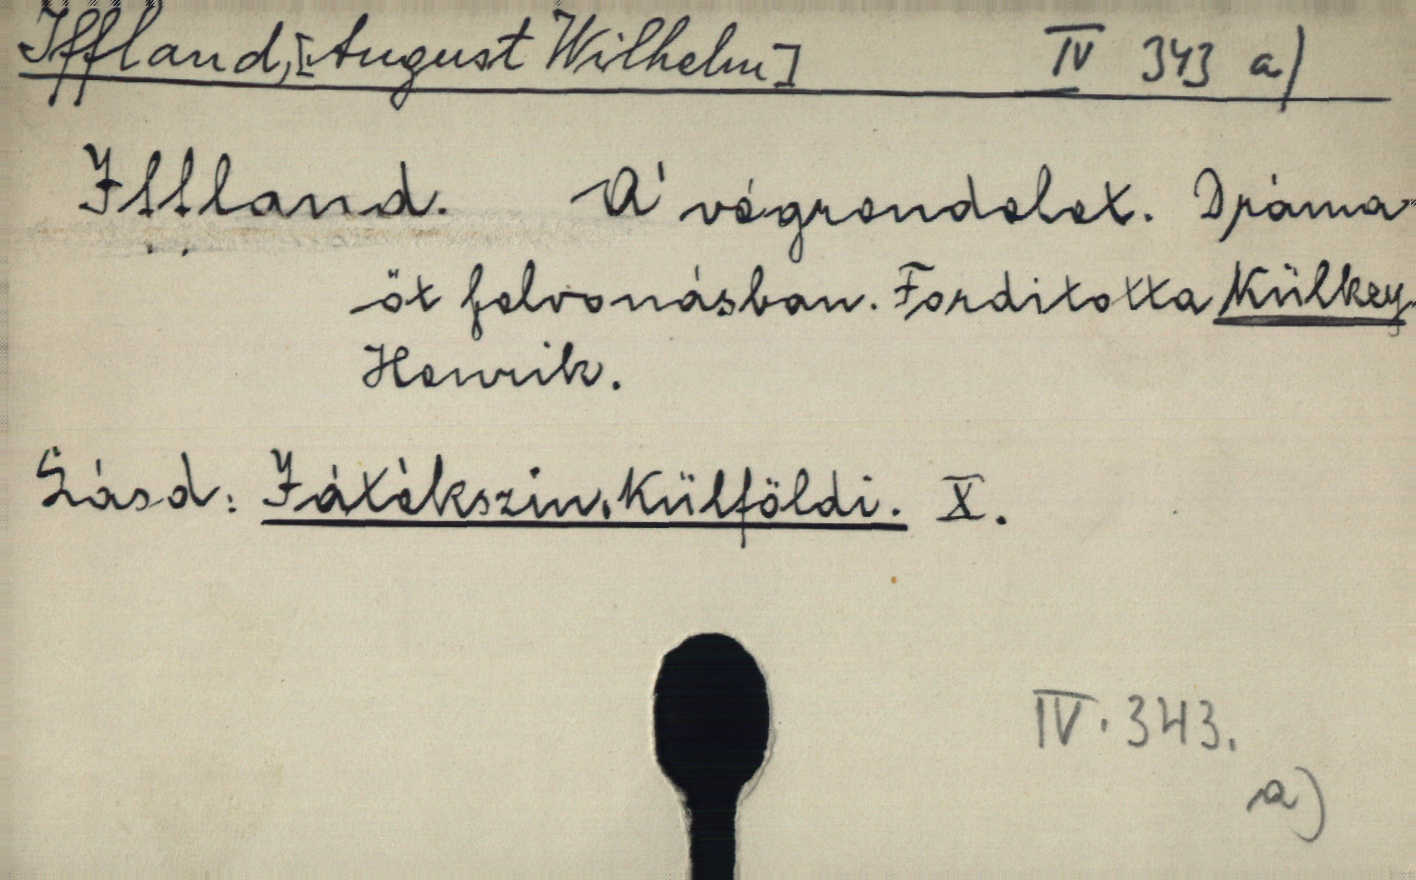 Iffland, [August Wilhelm] IV 343 a)
Iffland. A' végrendelet. Dráma
öt felvonásban. Forditotta Külkey
Henrik.
Lásd: Játékszin, Külföldi. X.
IV. 343.
a)